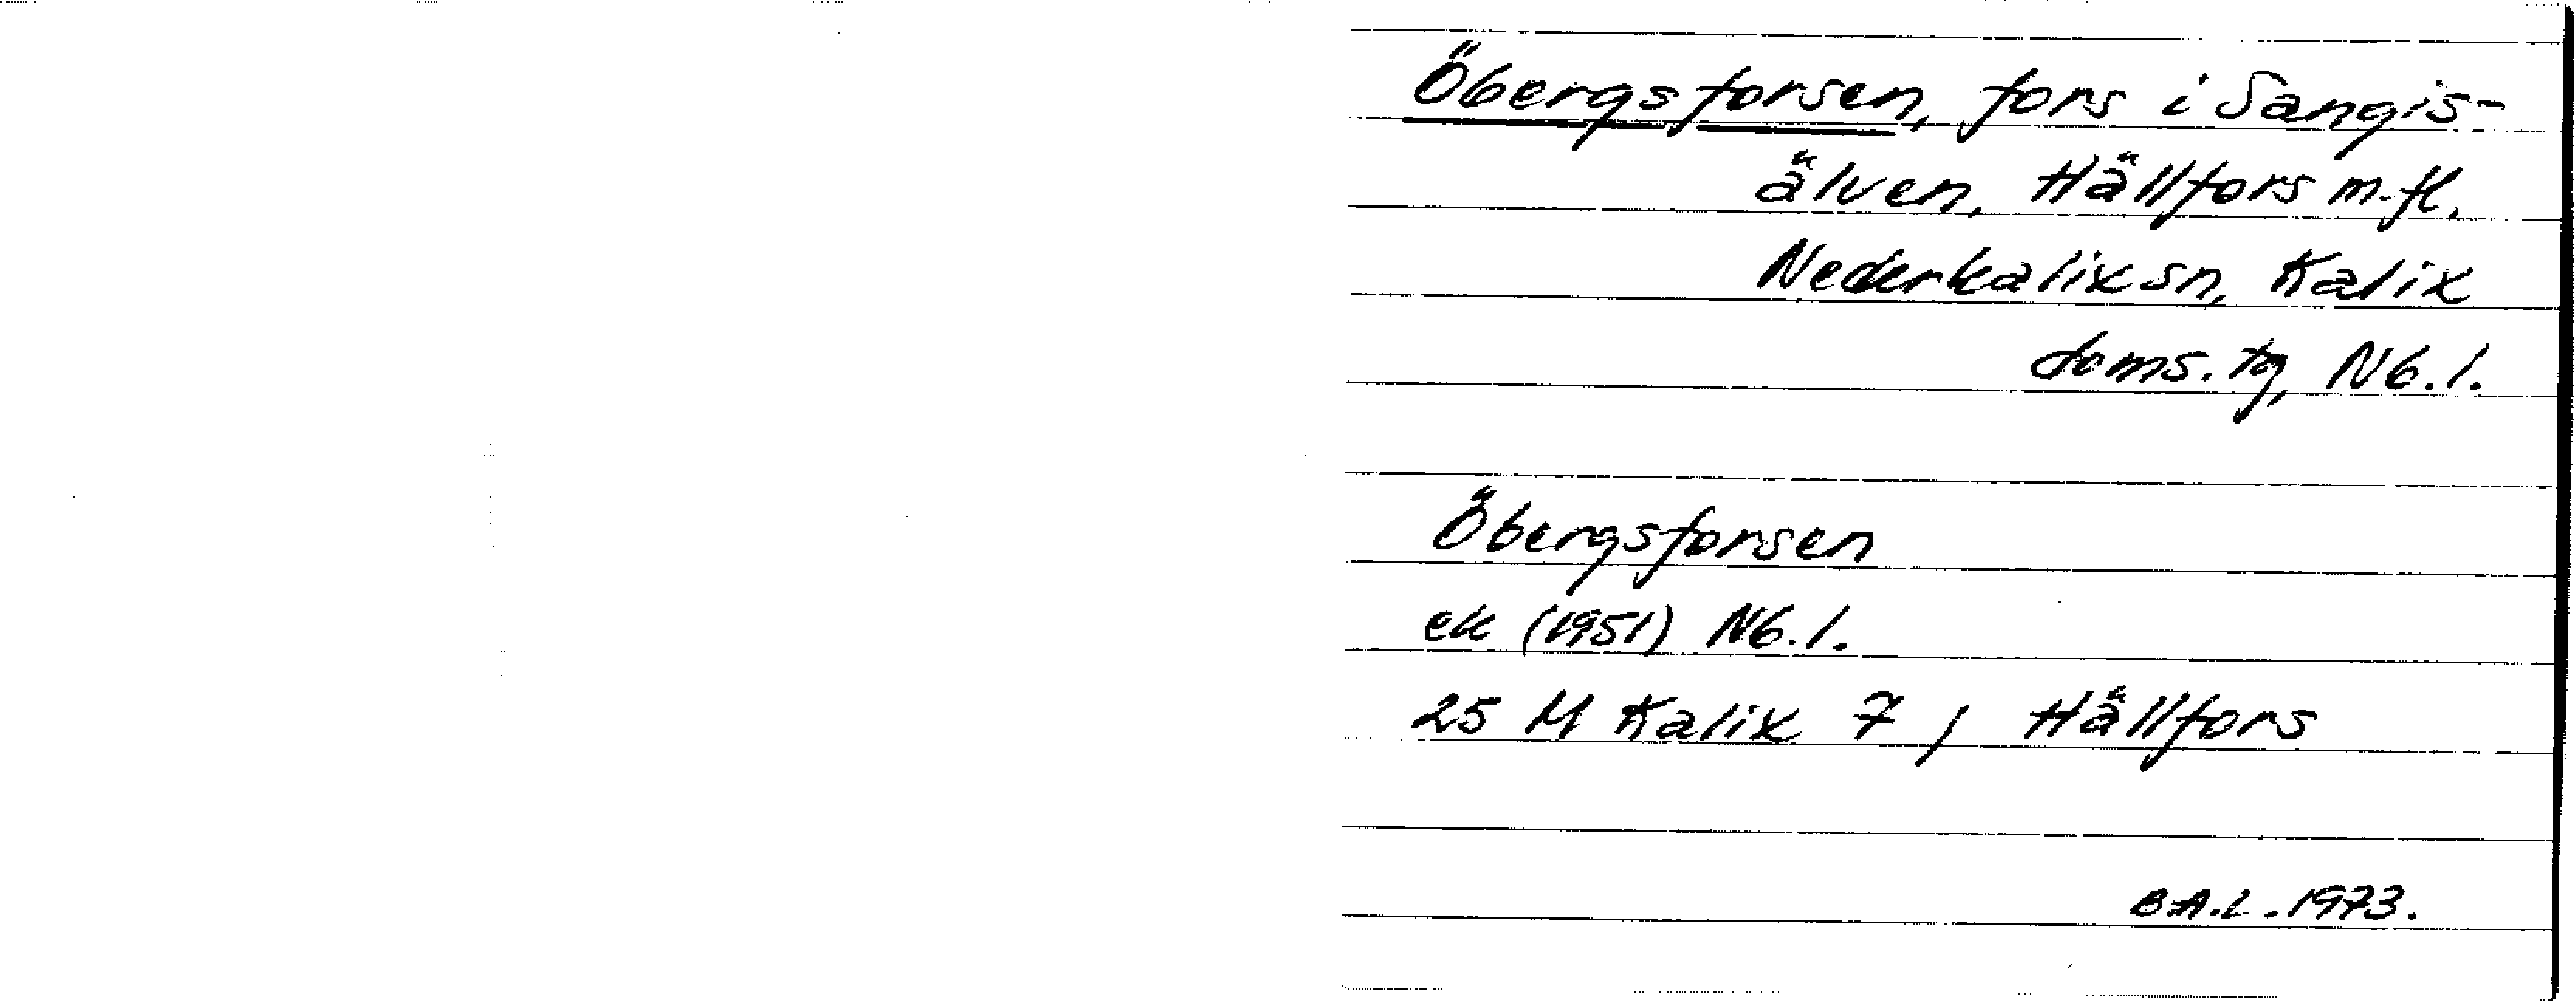 Öbergsforsen, fors i Sangis-
älven, Hällfors m.fl.
Nederkalix sn, Kalix
doms. tg, Nb. l.
Öbergsforsen
ek (1951) Nb. l.
25 M Kalix 7 / Hällfors
B.A.L. 1973.